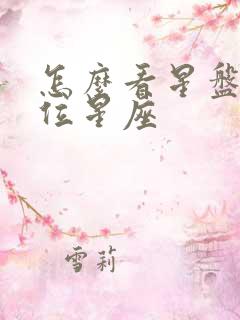 怎麼看星盤
位星座
雪莉